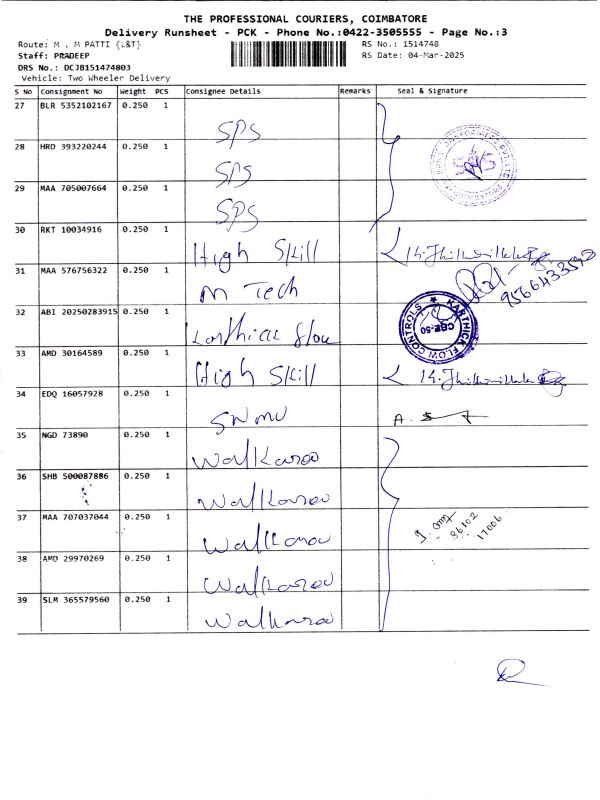 THE PROFESSIONAL COURIERS, COIMBATORE
Delivery Runsheet - PCK - Phone No.:0422-3505555 - Page No.:3
Route: M . M PATTI {L&T}
RS No.: 1514748
Staff: PRADEEP
RS Date: 04-Mar-2025
DRS No.: DCJB151474803
Vehicle: Two Wheeler Delivery
S No Consignment No Weight PCS Consignee Details Remarks Seal & Signature
27 BLR 5352102167 0.250 1 SPS
28 HRD 393220244 0.250 1 SPS
29 MAA 705007664 0.250 1 SPS
30 RKT 10034916 0.250 1 High Skill
31 MAA 576756322 0.250 1 M Tech 9566433592
32 ABI 20250283915 0.250 1 Karthick flow
KARTHICK FLOW CONTROLS CBE-50
33 AMD 30164589 0.250 1 High Skill
34 EDQ 16057928 0.250 1 SNMV
35 NGD 73890 0.250 1 Walkaroo
36 SHB 500087886 0.250 1 Walkaroo
37 MAA 707037044 0.250 1 Walkaroo 86102 17006
38 AMD 29970269 0.250 1 Walkaroo
39 SLM 365579560 0.250 1 Walkaroo